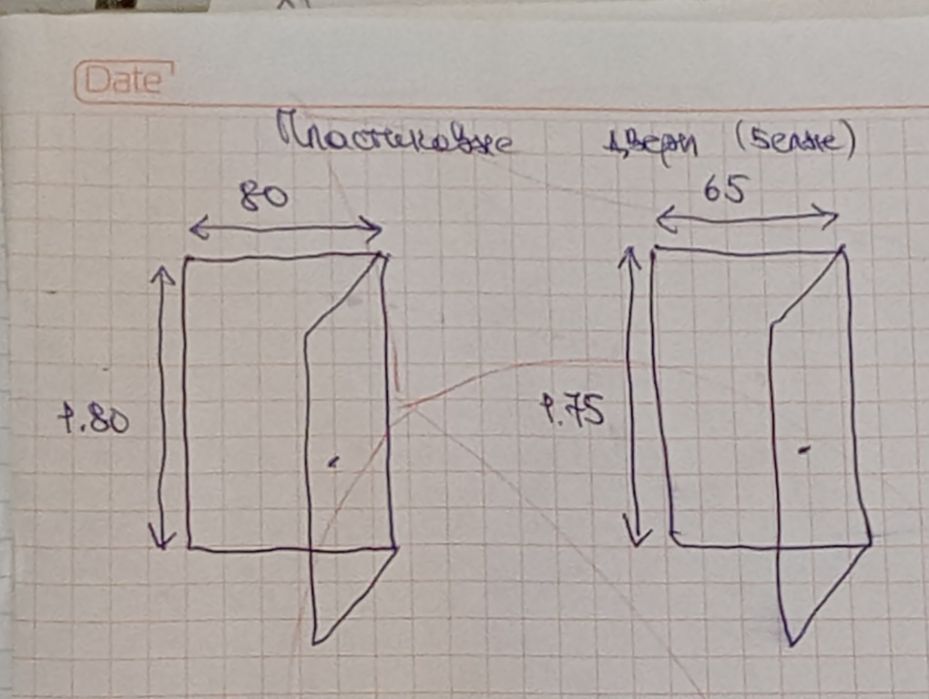 Date
Пластиковые двери (Белые)
80 65
1.80 1.75